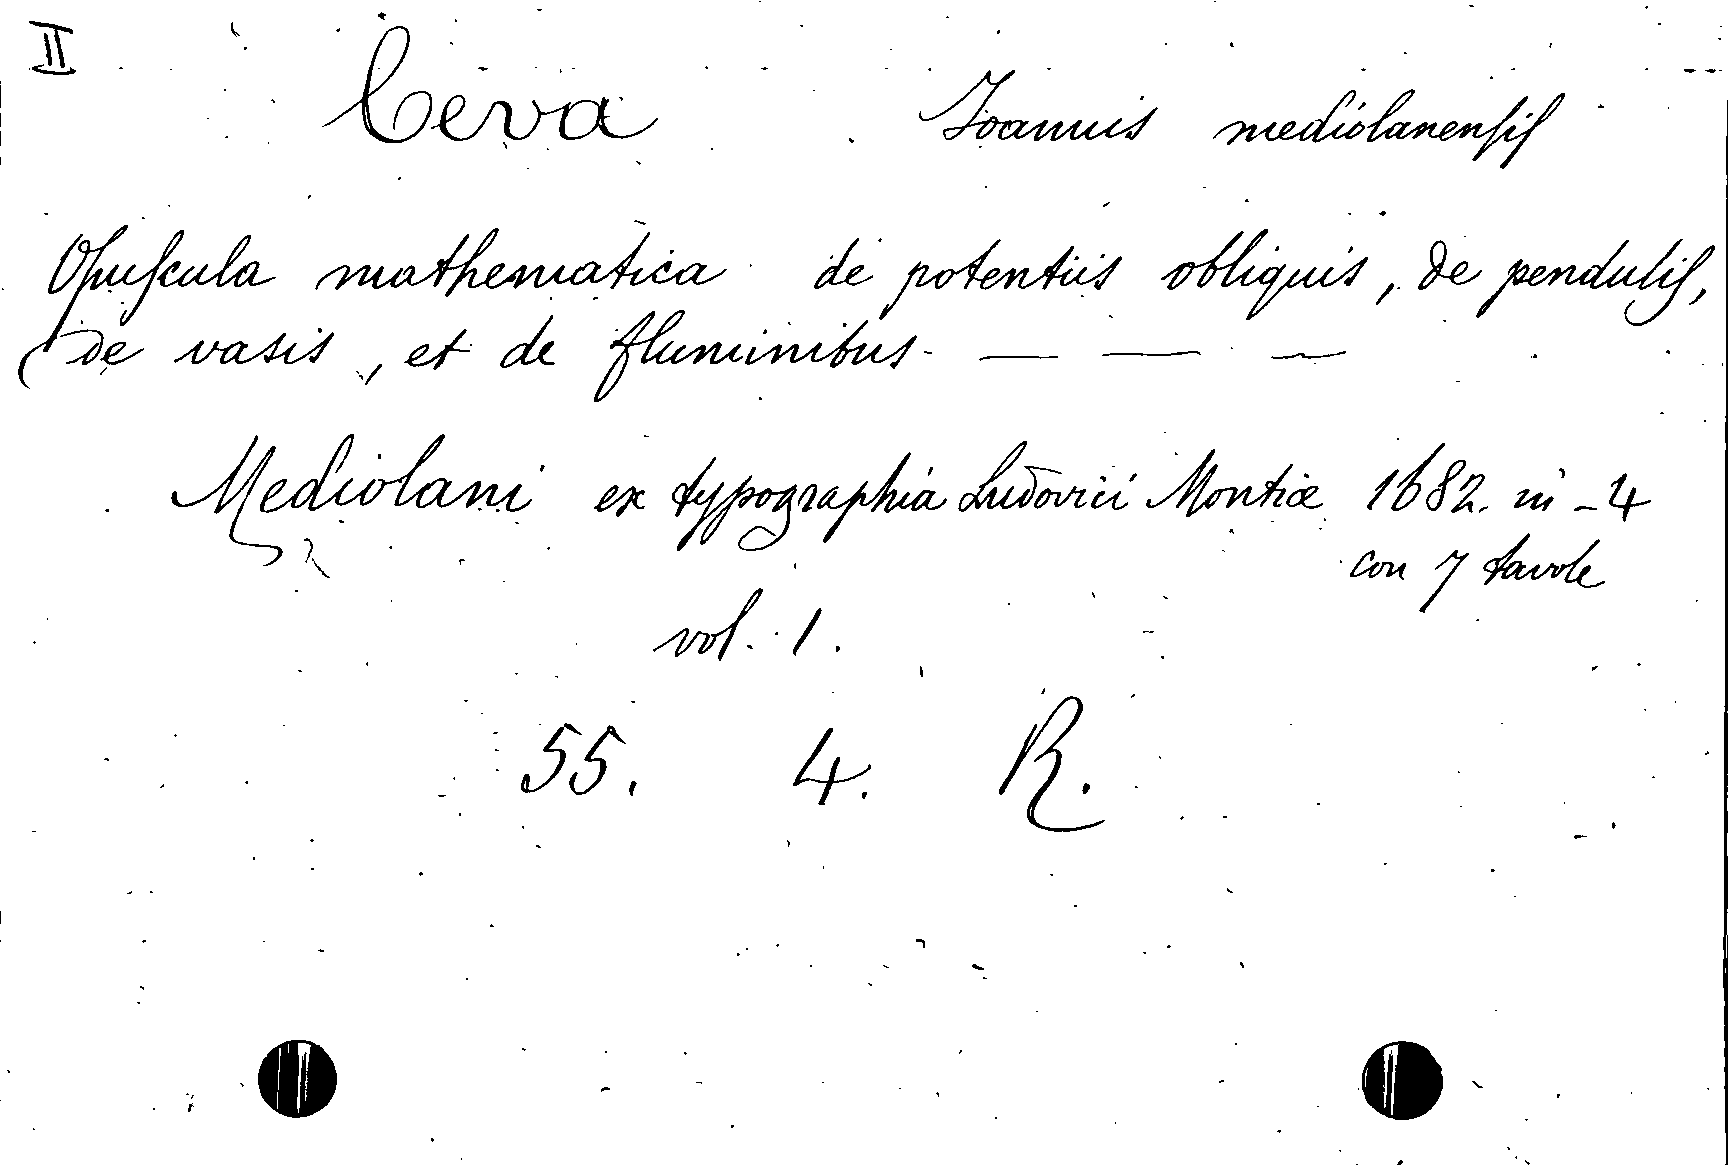 II
Ceva Joannis mediolanensis
Opuscula mathematica de potentiis obliquis, de pendulis,
de vasis, et de fluminibus - — — —
Mediolani ex typographia Ludovici Montiæ 1682. in-4
con 7 tavole
vol. 1.
55. 4. R.